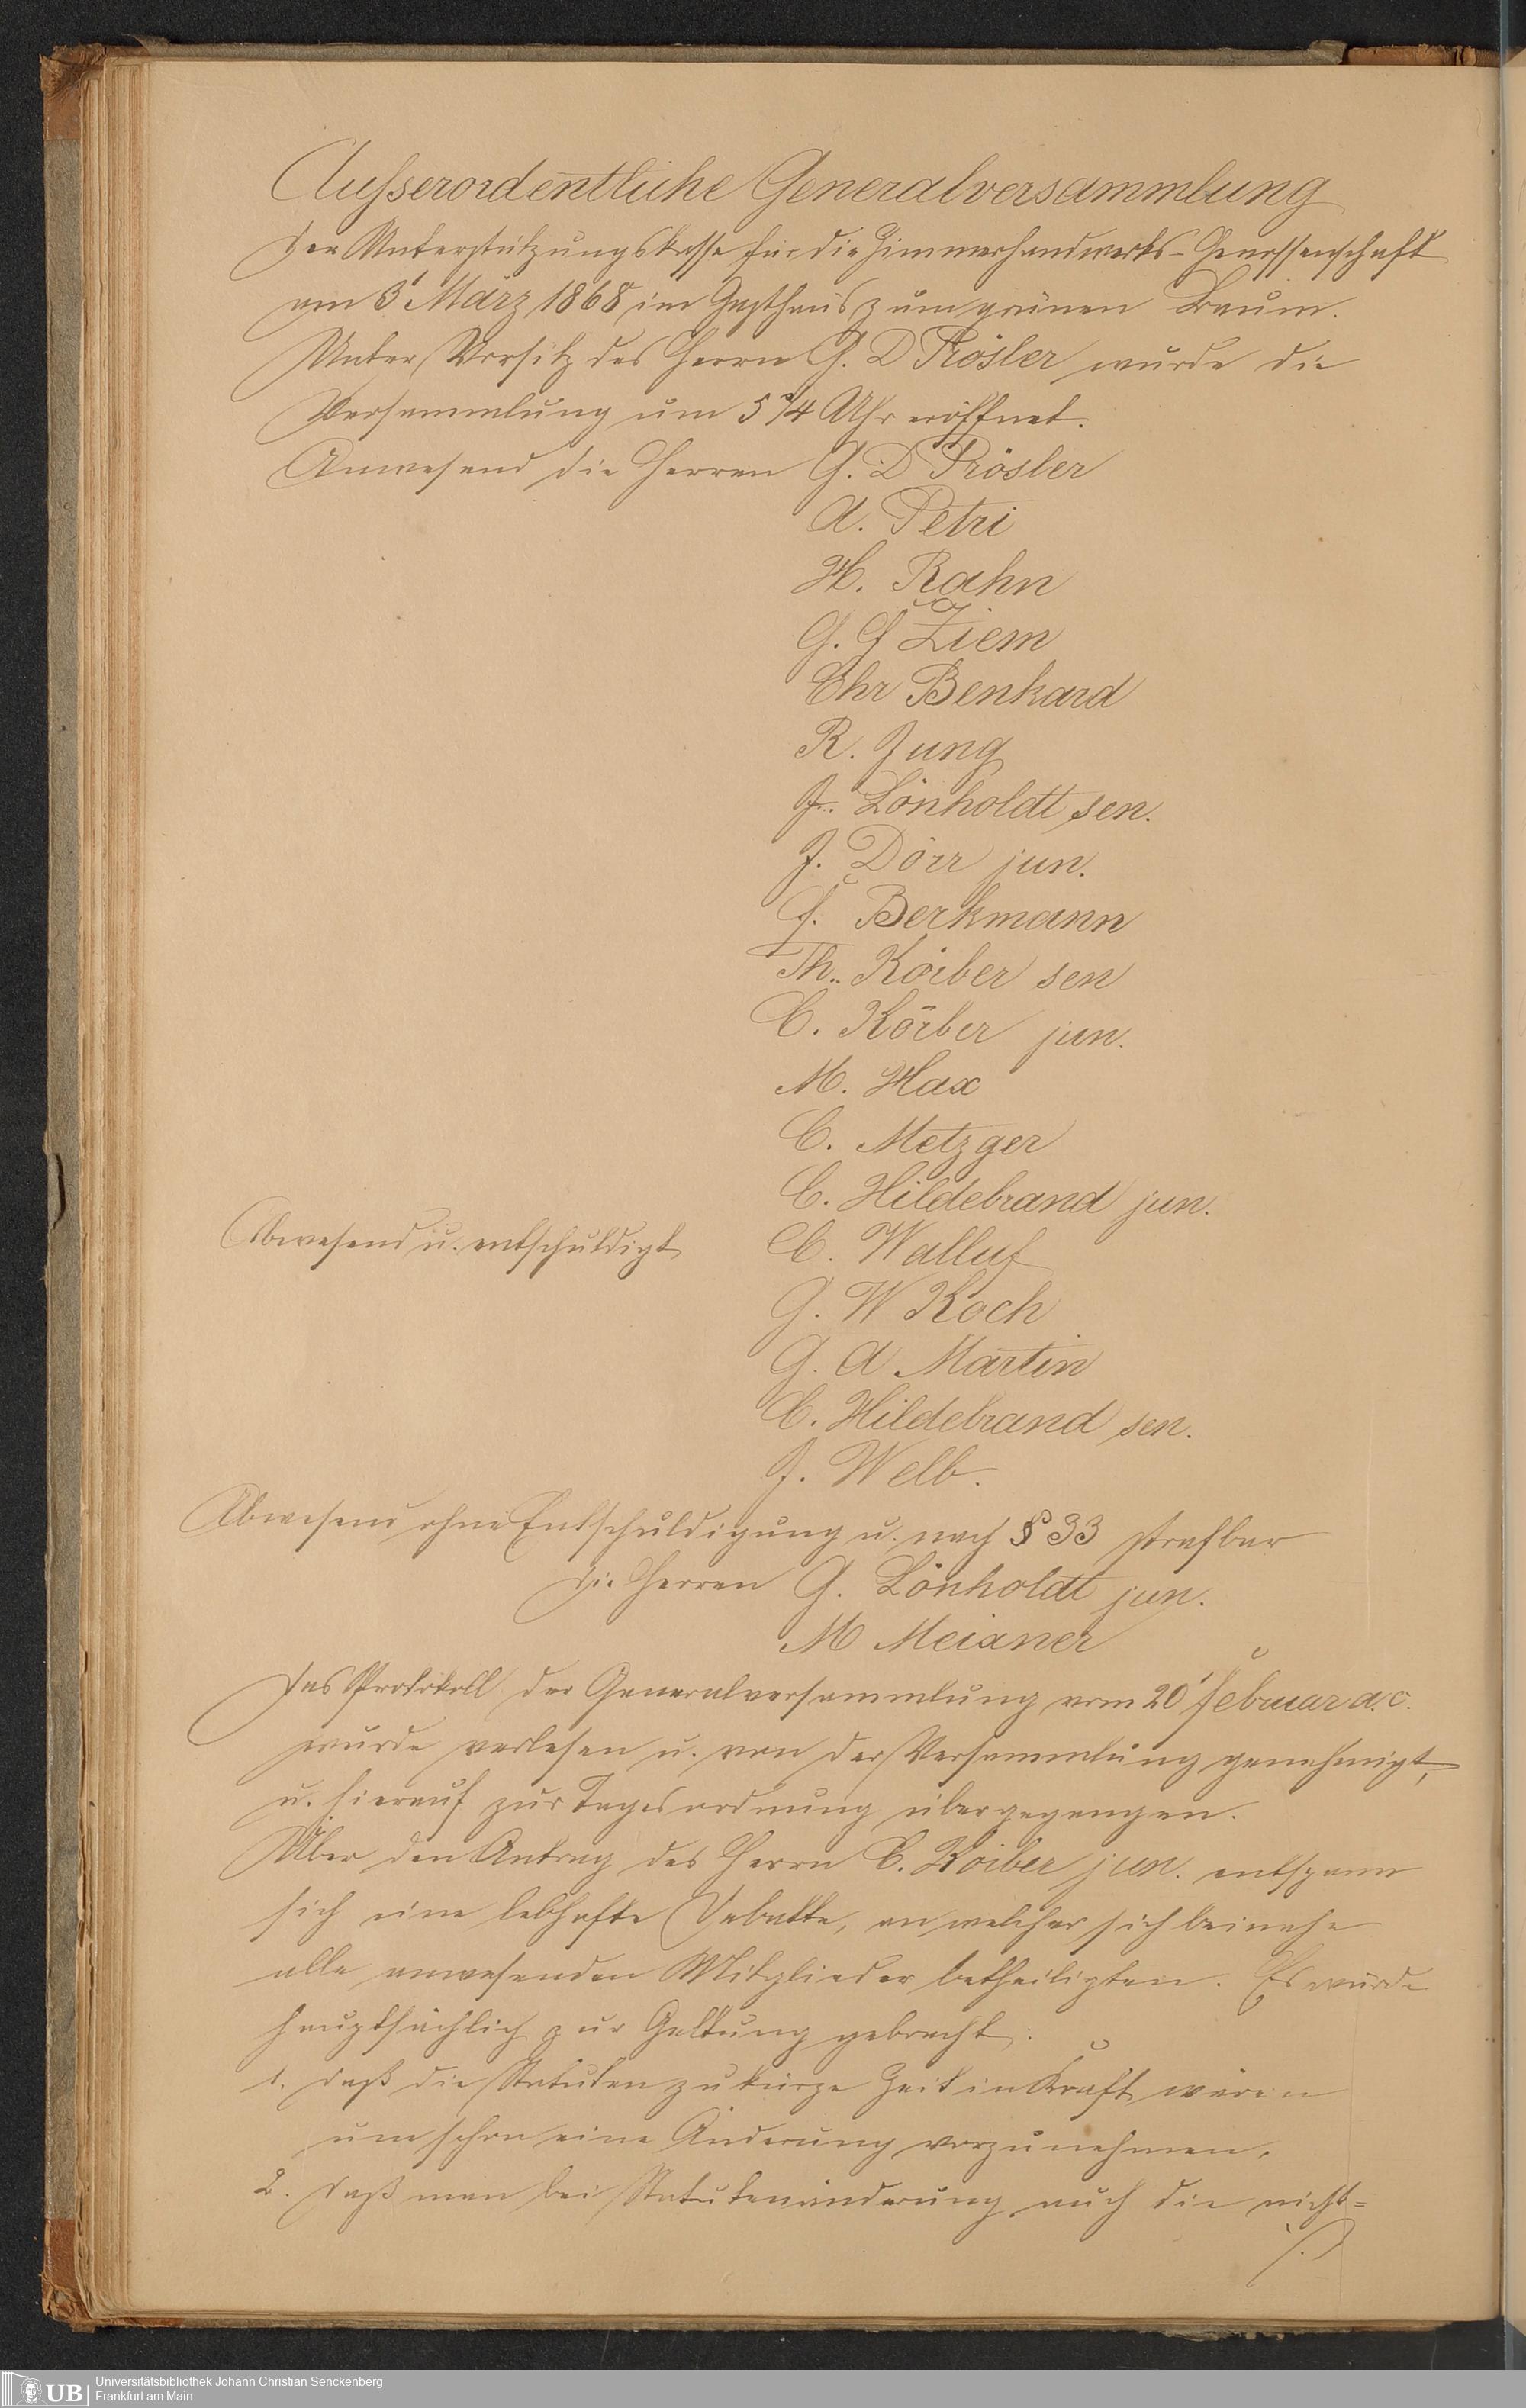 Ausserordentliche Generalversammlung
der Unterstützungskasse für die Zimmerhandwerks-Genossenschaft
am 3t März 1868 im Gasthaus zum grünen Baum.
Unter Vorsitz des Herrn G. D Prösler wurde die
Versammlung um 5 3/4 Uhr eröffnet.
Anwesend die Herren G. D Prösler
A. Petri
H. Rahn
G. J Ziem
Chr Benkard
R. Jung
J. Lönholdt sen.
J. Dörr jun.
J. Berkmann
Th. Körber sen
C. Körber jun.
M. Hax
C. Metzger
C. Hildebrand jun.
Abwesend u. entschuldigt C. Walluf
G. W Koch
G. A Martin
C. Hildebrand sen.
J. Welb.
Abwesend ohne Entschuldigung u. nach § 33 strafbar
die Herren G. Lönholdt jun.
M Meixner
Das Protokoll der Generalversammlung vom 20t Februar a. c.
wurde verlesen u. von der Versammlung genehmigt,
u. hierauf zur Tagesordnung übergegangen.
Über den Antrag des Herrn C. Körber jun. entspann
sich eine lebhafte Debatte, an welcher sich beinahe
alle anwesenden Mitglieder betheiligten. Es wurde
hauptsächlich zur Geltung gebracht:
1. daß die Statuten zu kurze Zeit in Kraft wären
um schon eine Änderung vorzunehmen.
2. daß man bei Statutenänderung auch die nicht=
Universitätsbibliothek Johann Christian Senckenberg
UB Frankfurt am Main